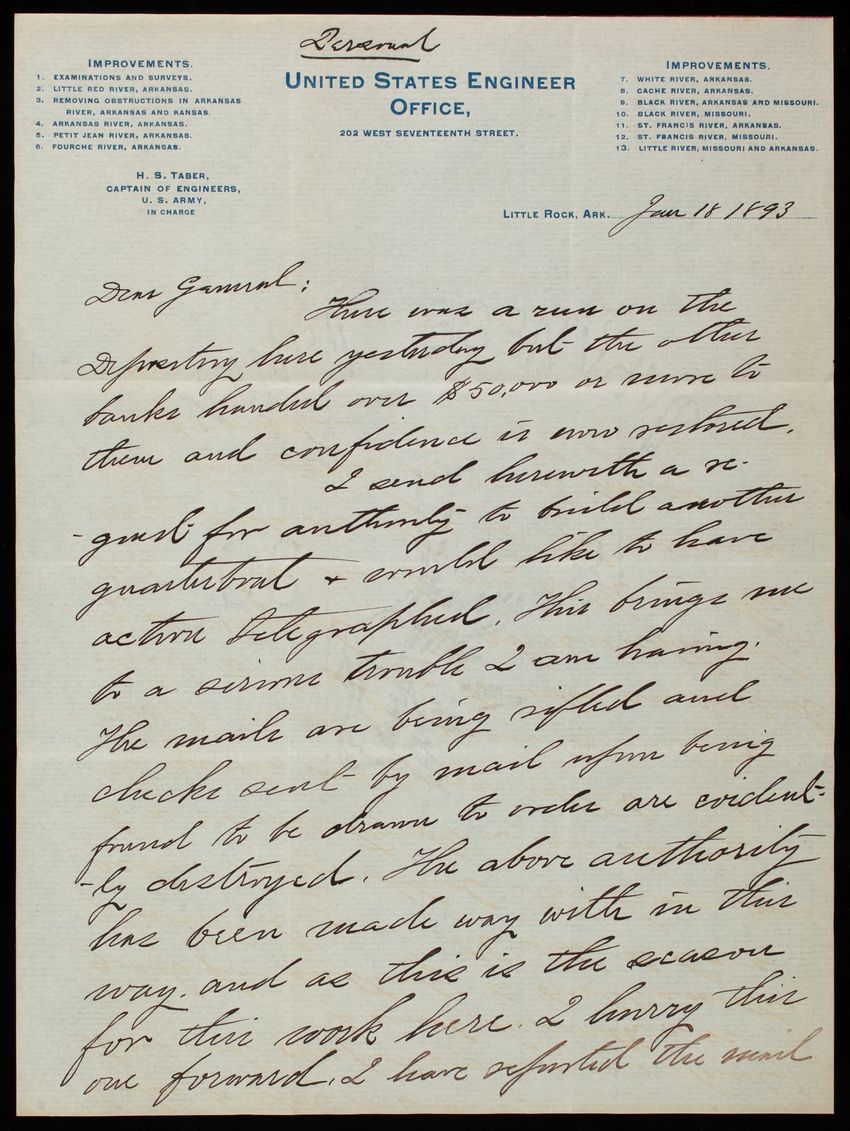 Personal
IMPROVEMENTS.
1. EXAMINATIONS AND SURVEYS.
2. LITTLE RED RIVER, ARKANSAS.
3. REMOVING OBSTRUCTIONS IN ARKANSAS
RIVER, ARKANSAS AND KANSAS.
4. ARKANSAS RIVER, ARKANSAS.
5. PETIT JEAN RIVER, ARKANSAS.
6. FOURCHE RIVER, ARKANSAS.
H. S. TABER,
CAPTAIN OF ENGINEERS,
U. S. ARMY,
IN CHARGE
UNITED STATES ENGINEER
OFFICE,
202 WEST SEVENTEENTH STREET.
IMPROVEMENTS.
7. WHITE RIVER, ARKANSAS.
8. CACHE RIVER, ARKANSAS.
9. BLACK RIVER, ARKANSAS AND MISSOURI.
10. BLACK RIVER, MISSOURI.
11. ST. FRANCIS RIVER, ARKANSAS.
12. ST. FRANCIS RIVER, MISSOURI.
13. LITTLE RIVER, MISSOURI AND ARKANSAS.
LITTLE ROCK, ARK. Jan 18 1893
Dear General:
There was a run on the
Depository here yesterday but the other
banks handed over $50,000 or more to
them and confidence is now restored.
I send herewith a re-
-quest for authority to build another
quarterboat + would like to have
action telegraphed. This brings me
to a serious trouble I am having.
The mails are being rifled and
checks sent by mail upon being
found to be drawn to order are evident-
-ly destroyed. The above authority
has been made way with in this
way. and as this is the season
for this work here. I hurry this
one forward. I have reported the mail